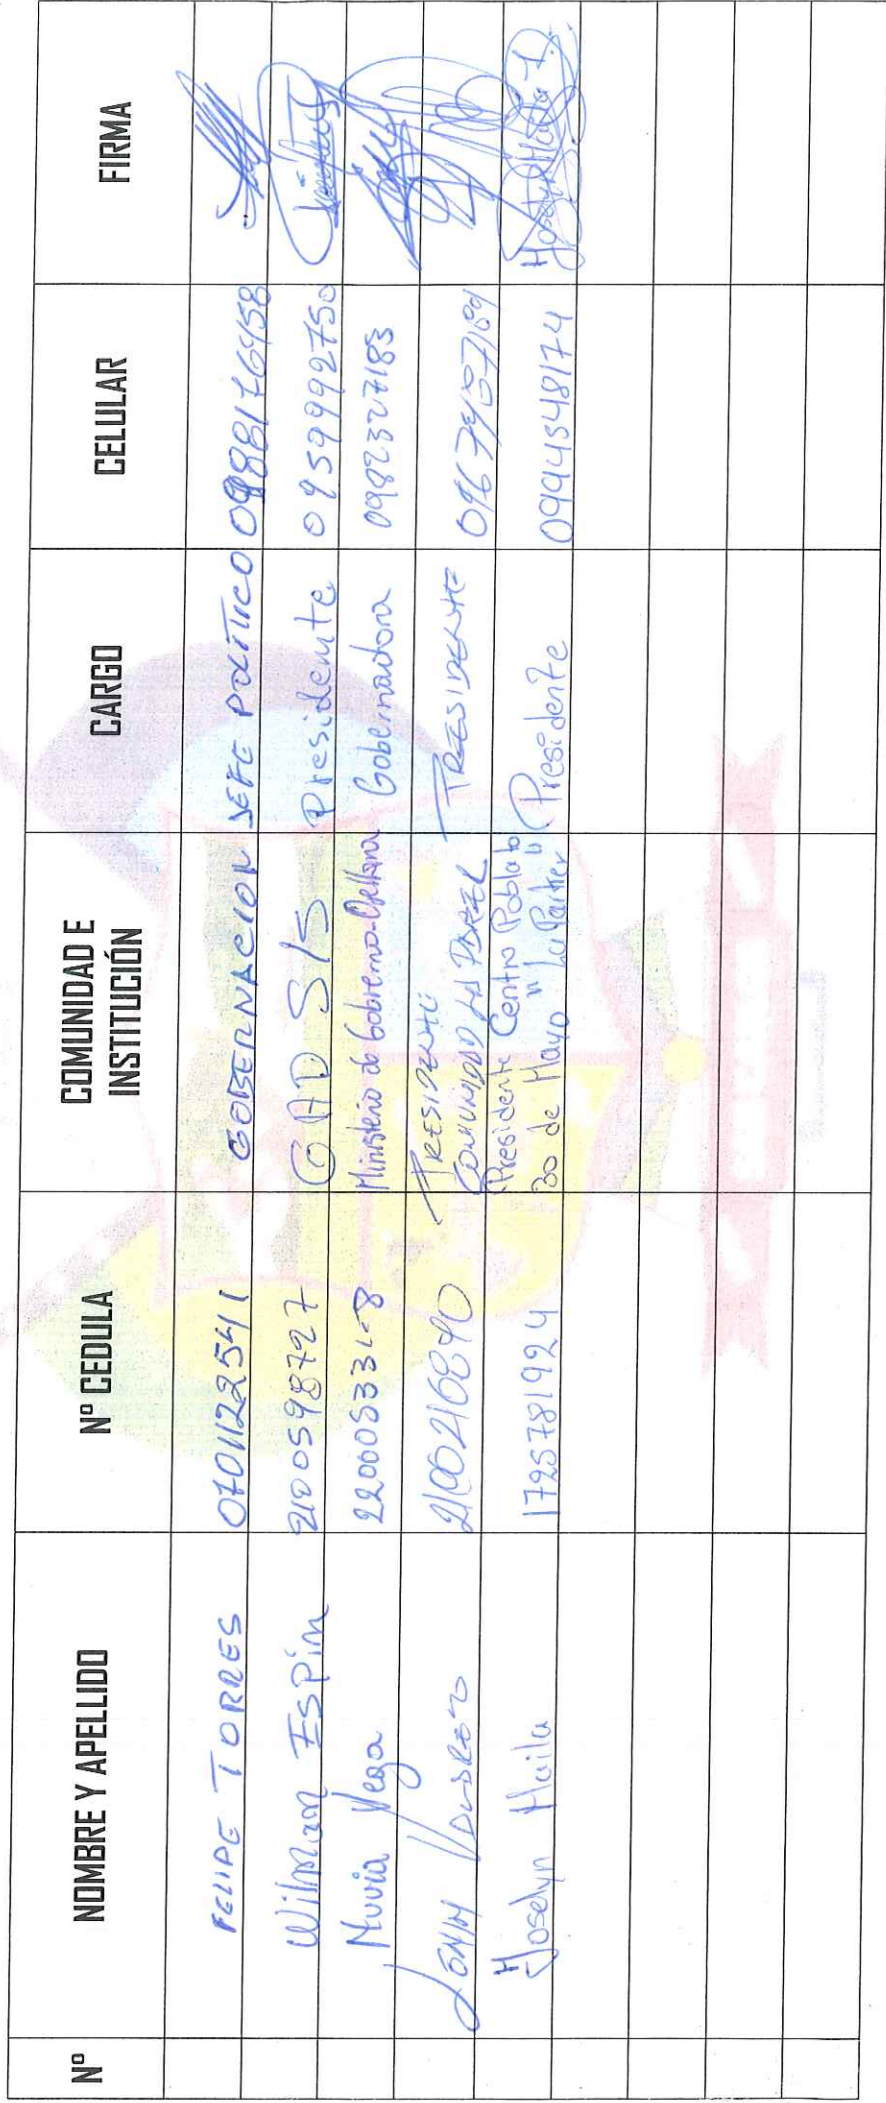 Nº NOMBRE Y APELLIDO Nº CEDULA COMUNIDAD E INSTITUCIÓN CARGO CELULAR FIRMA
FELIPE TORRES 0701122541 GOBERNACION JEFE POLITICO 0988176458
Wilman Espin 2100598727 GAD S/S Presidente 0959992750
Nuvia Vega 220005331-8 Ministerio de Gobierno-Orellana Gobernadora 0982327183
2100216840 PRESIDENTE COMUNIDAD PRESIDENTE
Joselyn Huila 1725781924 Presidente Centro Poblado 30 de Mayo " La Parker " Presidente 0994548174